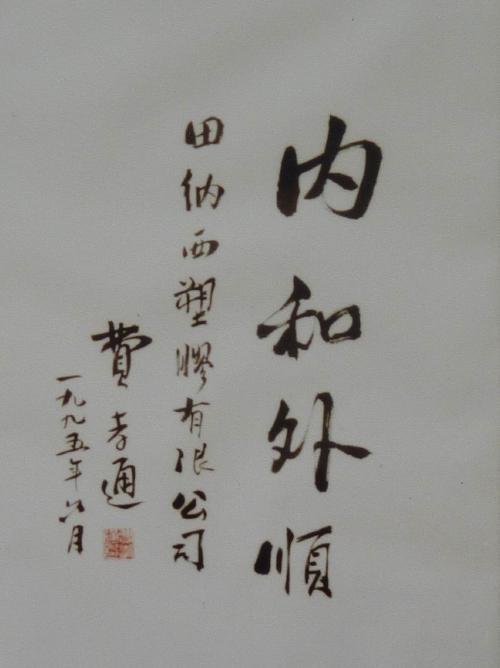 内和外順
田納西塑膠有限公司
費孝通
一九九五年六月